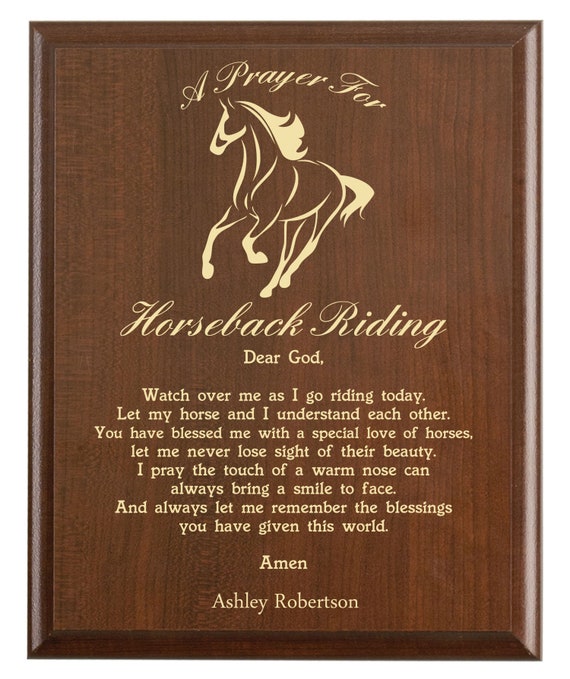 A Prayer For
Horseback Riding
Dear God,
Watch over me as I go riding today.
Let my horse and I understand each other.
You have blessed me with a special love of horses,
let me never lose sight of their beauty.
I pray the touch of a warm nose can
always bring a smile to face.
And always let me remember the blessings
you have given this world.
Amen
Ashley Robertson